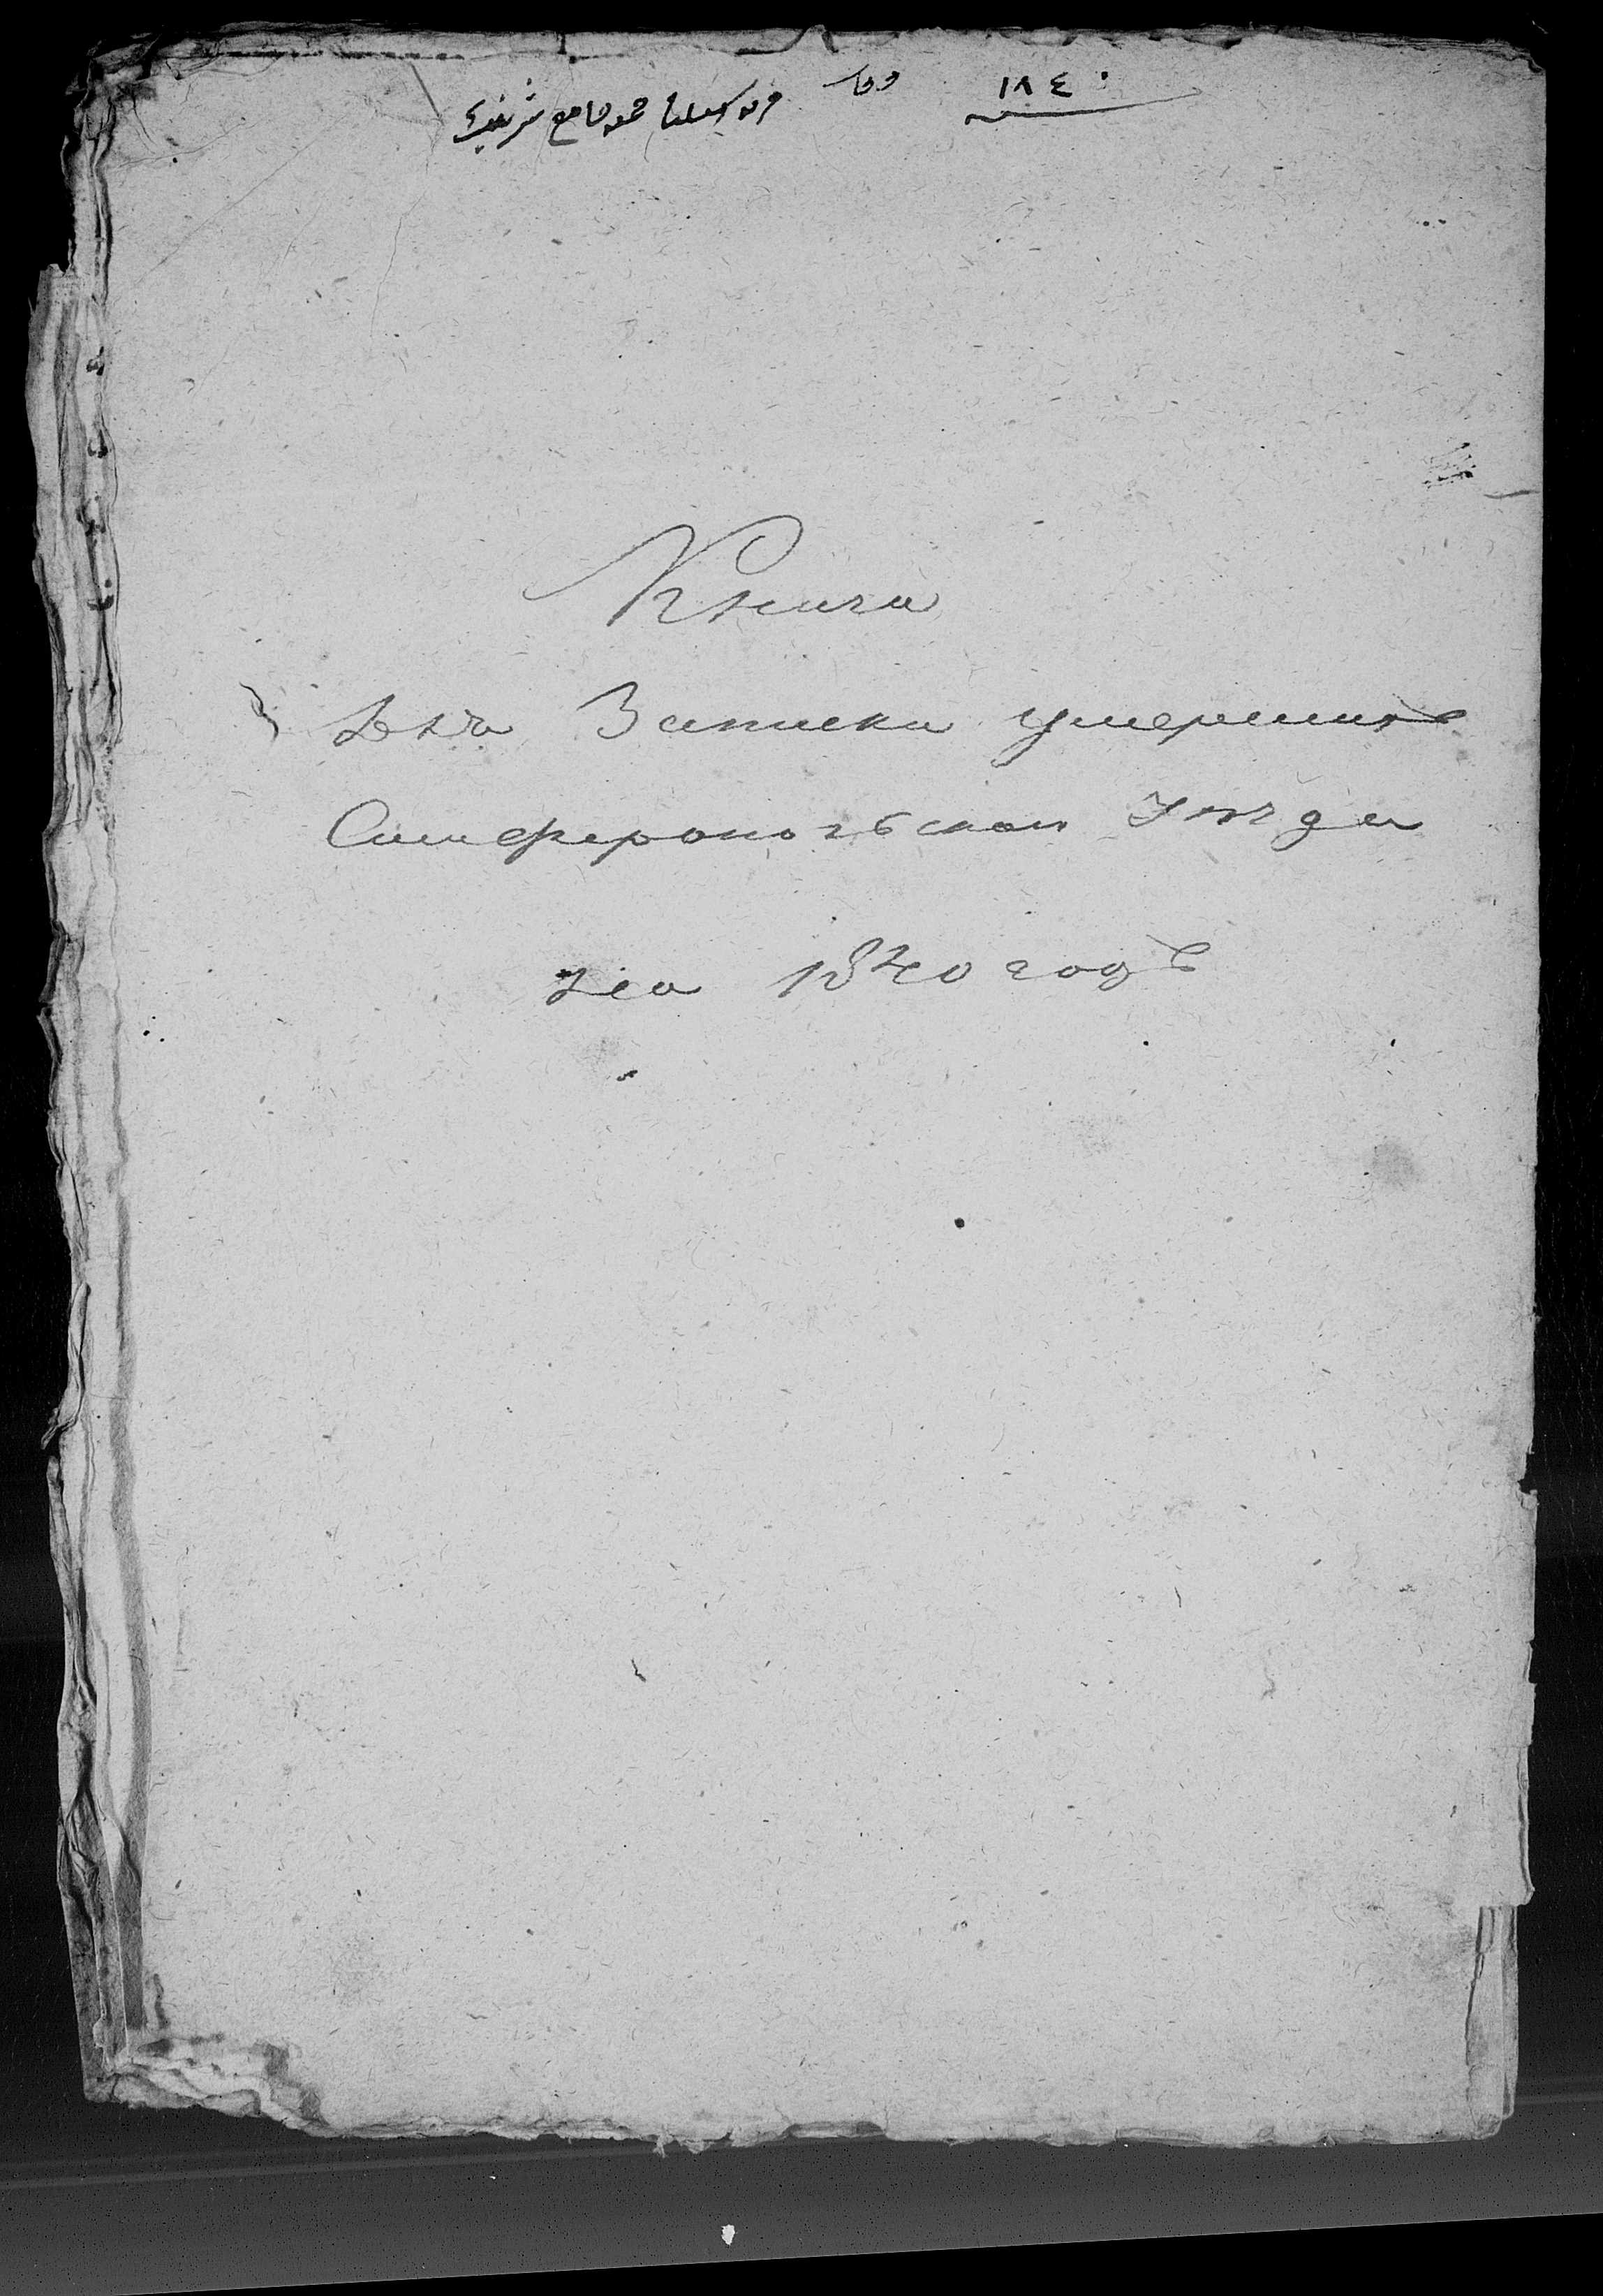 ١٨٤٠ سنه
جامع شريفى
Книга
Для Записки умершихъ
Симферопольскаго Уѣзда
на 1840 годъ